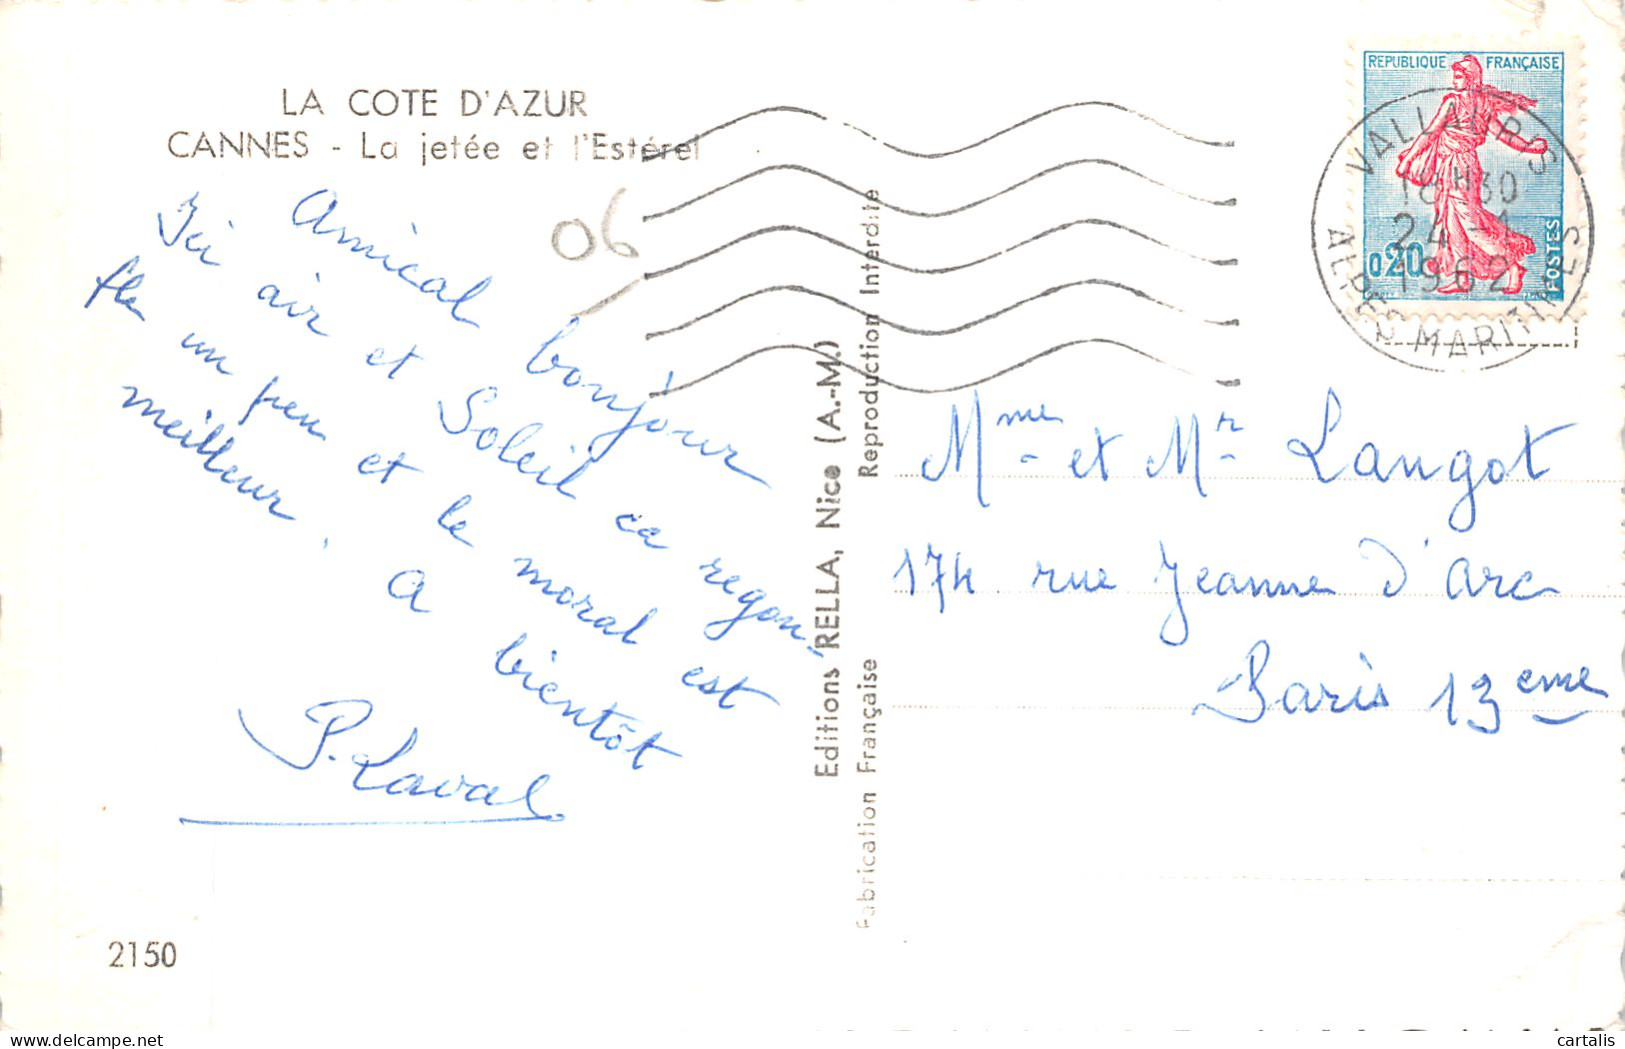 LA COTE D'AZUR
CANNES - La jetée et l'Estérel
06
Amical bonjour
Ici air et Soleil ca regon-
fle un peu et le moral est
meilleur. A bientôt
P. Laval
2150
Editions RELLA, Nice (A.-M.)
Fabrication Française
Reproduction Interdite
REPUBLIQUE FRANÇAISE
0,20
POSTES
VALLAURIS
18H30
24 -1
1962
ALPES MARITIMES
Mme et Mr Langot
174 rue Jeanne d'Arc
Paris 13eme
cartalis